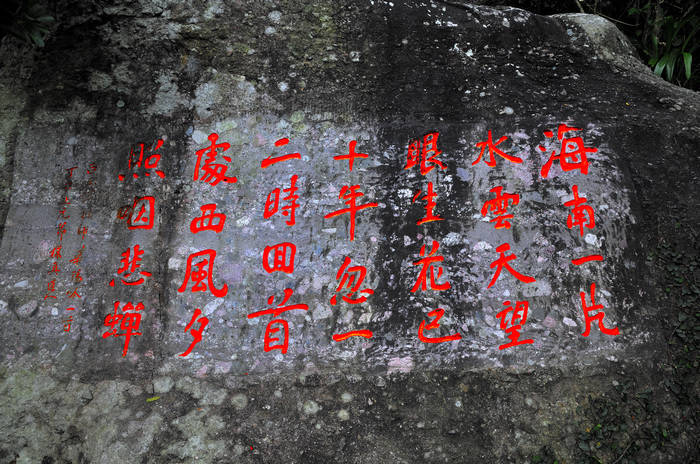 海南一片
水雲天望
眼生花已
十年忽一
二時回首
處西風夕
照咽悲蟬